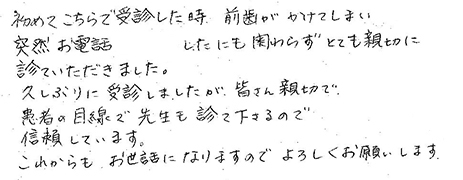 初めてこちらで受診した時 前歯がかけてしまい
突然お電話 したにも関わらずとても親切に
診ていただきました。
久しぶりに受診しましたが、皆さん親切で、
患者の目線で先生も診て下さるので
信頼しています。
これからもお世話になりますのでよろしくお願いします。